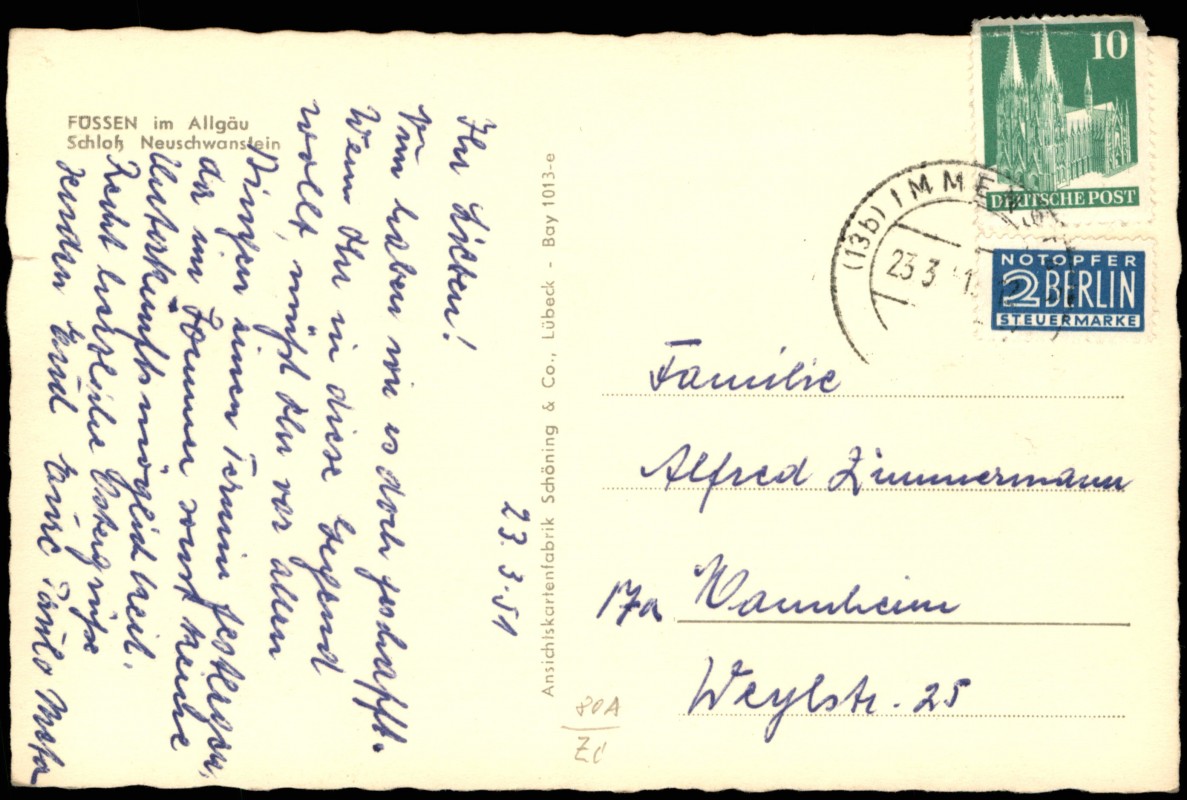 FÜSSEN im Allgäu
Schloß Neuschwanstein
23.3.51
Ihr Lieben!
Nun haben wir es doch geschafft.
Wenn Ihr in diese Gegend
wollt, müßt Ihr vor allen
Dingen einen Termin festlegen,
da im Sommer sonst keine
Unterkunftsmöglichkeit.
Recht herzliche Ostergrüße
senden Euch Eure
Ansichtskartenfabrik Schöning & Co., Lübeck - Bay 1013-e
10
DEUTSCHE POST
NOTOPFER
2 BERLIN
STEUERMARKE
(13b) IMMEN
23.3.
Familie
Alfred Zimmermann
17a Mannheim
Weylstr. 25
80A
Zi